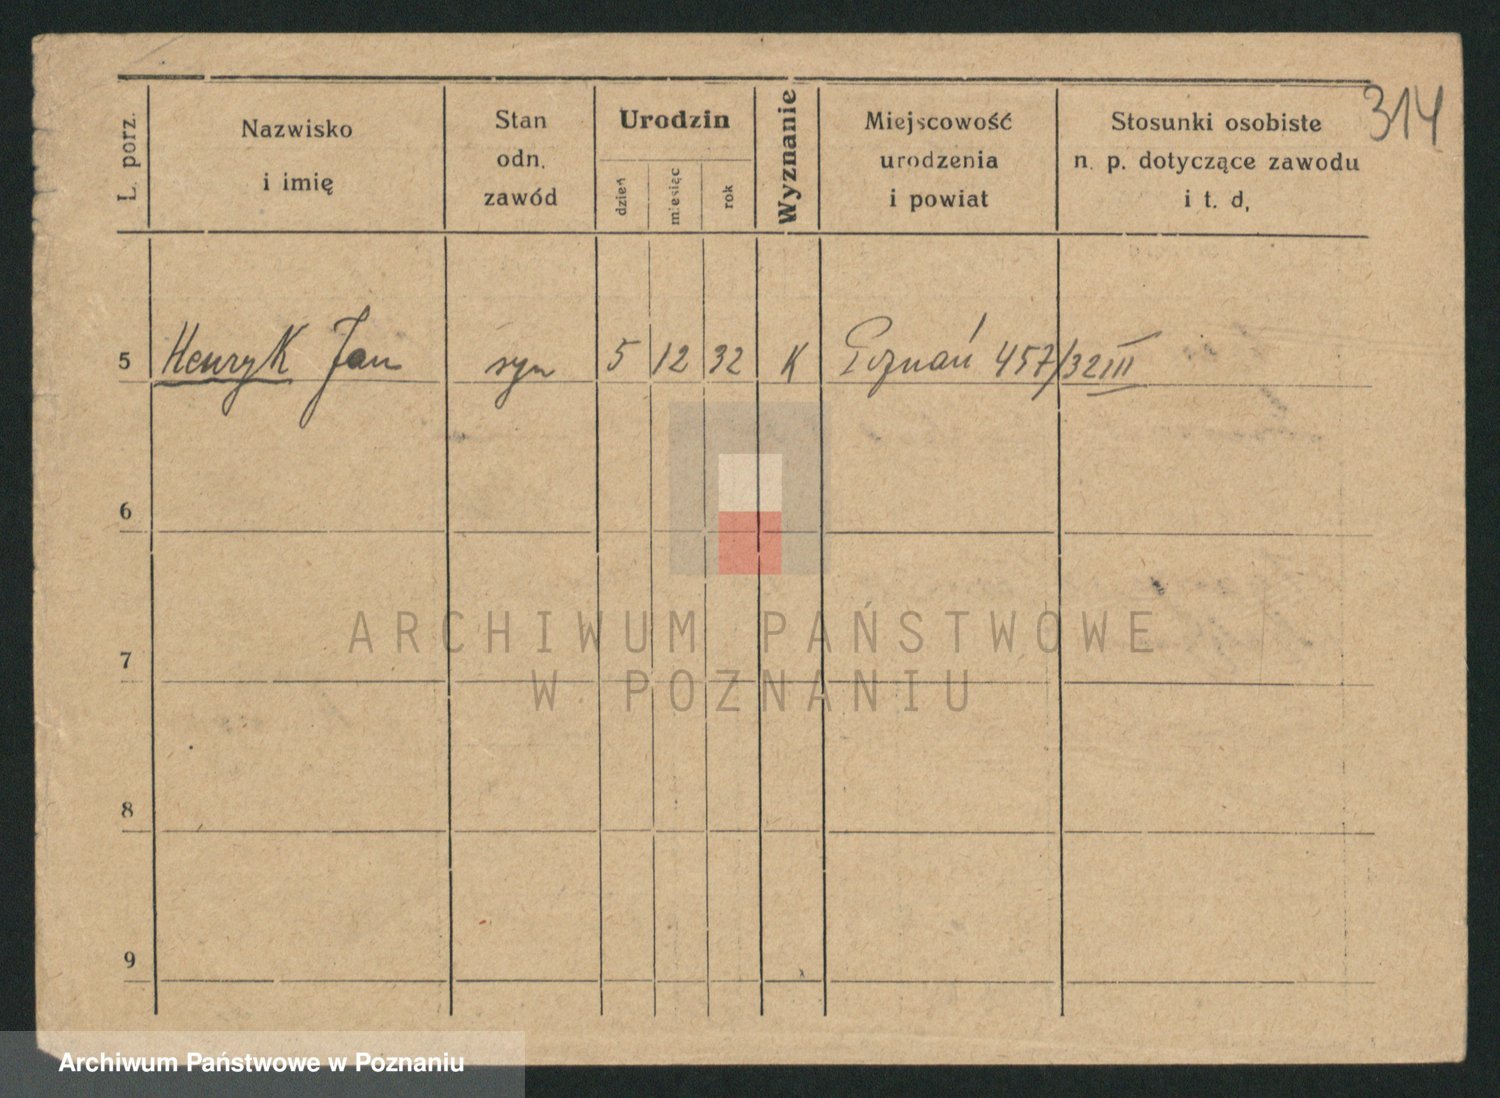 314
L. porz.
Nazwisko
i imię
Stan
odn.
zawód
Urodzin
dzień
miesiąc
rok
Wyznanie
Miejscowość
urodzenia
i powiat
Stosunki osobiste
n. p. dotyczące zawodu
i t. d,
5 Henryk Jan syn 5 12 32 K Poznań 457/32III
6
7
8
9
ARCHIWUM PAŃSTWOWE
W POZNANIU
Archiwum Państwowe w Poznaniu